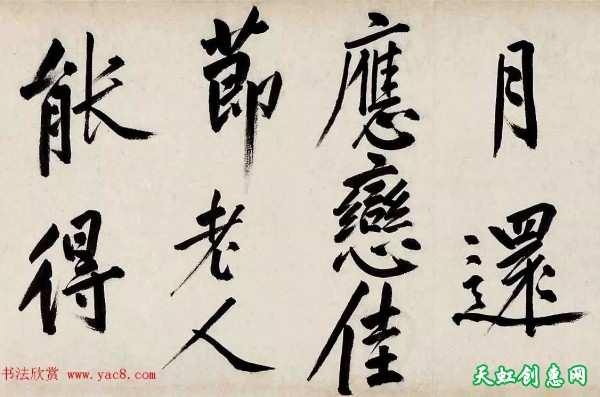 月還
應戀佳
節老人
能得
书法欣赏 www.yac8.com
天虹创惠网